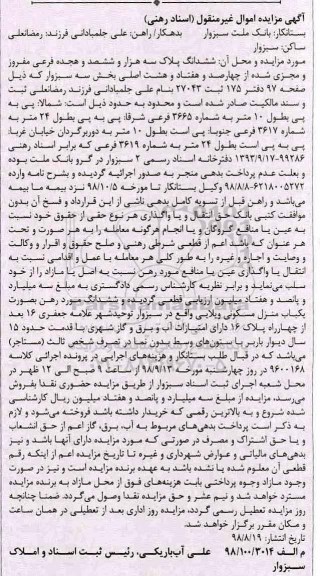 آگهی مزایده اموال غیرمنقول (اسناد رهنی)
بستانکار: بانک ملت سبزوار بدهکار/ راهن: علی جلمبادانی فرزند: رمضانعلی
ساکن: سبزوار
مورد مزایده و محل آن: ششدانگ پلاک سه هزار و ششصد و هجده فرعی مفروز
و مجزی شده از چهارصد و هفتاد و هشت اصلی بخش سه سبزوار که ذیل
صفحه ۹۷ دفتر ۱۷۵ ثبت ۲۷۰۴۳ بنام علی جلمبادانی فرزند رمضانعلی ثبت
و سند مالکیت صادر شده است و محدود به حدود ذیل است: شمالا: پی به
پی بطول ۱۰ متر به شماره ۳۶۶۵ فرعی شرقا: پی به پی بطول ۲۴ متر به
شماره ۳۶۱۷ فرعی جنوبا: پی است بطول ۱۰ متر به دوربرگردان خیابان غربا:
پی به پی است بطول ۲۴ متر به شماره ۳۶۱۹ فرعی که برابر اسناد رهنی
۹۹۲۸۶-۱۳۹۳/۹/۱۷ دفترخانه اسناد رسمی ۲ سبزوار در گرو بانک ملت بوده
و بعلت عدم پرداخت بدهی منجر به صدور اجرائیه گردیده و بشرح نامه وارده
۶۲۱۸۰۰۵۲۷۲-۹۸/۸/۸ وکیل بستانکار تا مورخه ۹۸/۱۰/۵ نزد بیمه ما بیمه
می‌باشد و راهن قبل از تسویه کامل بدهی ناشی از این قرارداد و فخ آن بدون
موافقت کتبی بانک حق انتقال و یا واگذاری هر نوع حقی از حقوق خود نسبت
به عین یا منافع گروگان و یا انجام هرگونه معامله را به هر صورت و تحت
هر عنوان که باشد اعم از قطعی شرطی رهنی و صلح حقوق و اقرار و وکالت
و وصایت و اجاره و غیره را به طور کلی هر معامله یا عمل و اقدامی نسبت به
انتقال یا واگذاری عین یا منافع مورد رهن نسبت به اصل یا مازاد را از خود
سلب می‌نماید و برابر نظریه کارشناس رسمی دادگستری به مبلغ سه میلیارد
و پانصد و هفتاد میلیون ارزیابی قطعی گردیده و ششدانگ مورد رهن بصورت
یکباب منزل مسکونی ویلایی واقع در سبزوار توحیدشهر علامه جعفری ۱۶ بعد
از چهارراه پلاک ۱۶ دارای امتیازات آب و برق و گاز شهری با قدمت حدود ۱۵
سال دیوار باربر با ستون‌های وسط بدون نما در تصرف شخص ثالث (مستاجر)
می‌باشد که در قبال طلب بستانکار و هزینه‌های اجرایی در پرونده اجرائی کلاسه
۹۶۰۰۱۶۸ در روز چهارشنبه مورخه ۹۸/۹/۱۳ از ساعت ۹ صبح الی ۱۲ ظهر در
محل شعبه اجرای ثبت اسناد سبزوار از طریق مزایده حضوری نقدا بفروش
می‌رسد، مزایده از مبلغ سه میلیارد و پانصد و هفتاد میلیون ریال کارشناسی
شده شروع و به بالاترین رقمی که خریدار داشته باشد فروخته می‌شود و لازم
به ذکر است پرداخت بدهی‌های مربوط به آب، برق، گاز اعم از حق انشعاب
و یا حق اشتراک و مصرف در صورتی که مورد مزایده دارای آنها باشد و نیز
بدهی‌های مالیاتی و عوارض شهرداری و غیره تا تاریخ مزایده اعم از اینکه رقم
قطعی آن معلوم شده یا نشده باشد به عهده برنده مزایده است و نیز در صورت
وجود مازاد وجوه پرداختی بابت هزینه‌های فوق از محل مازاد به برنده مزایده
مسترد خواهد شد و نیم عشر و حق مزایده نقدا وصول می‌گردد. ضمنا چنانچه
روز مزایده تعطیل رسمی گردد، مزایده روز اداری بعد از تعطیلی در همان ساعت
و مکان مقرر برگزار خواهد شد.
تاریخ انتشار: ۹۸/۸/۱۹
م الف ۹۸/۱۰۰/۳۰۱۴ علی آب‌باریکی، رئیس ثبت اسناد و املاک
سبزوار